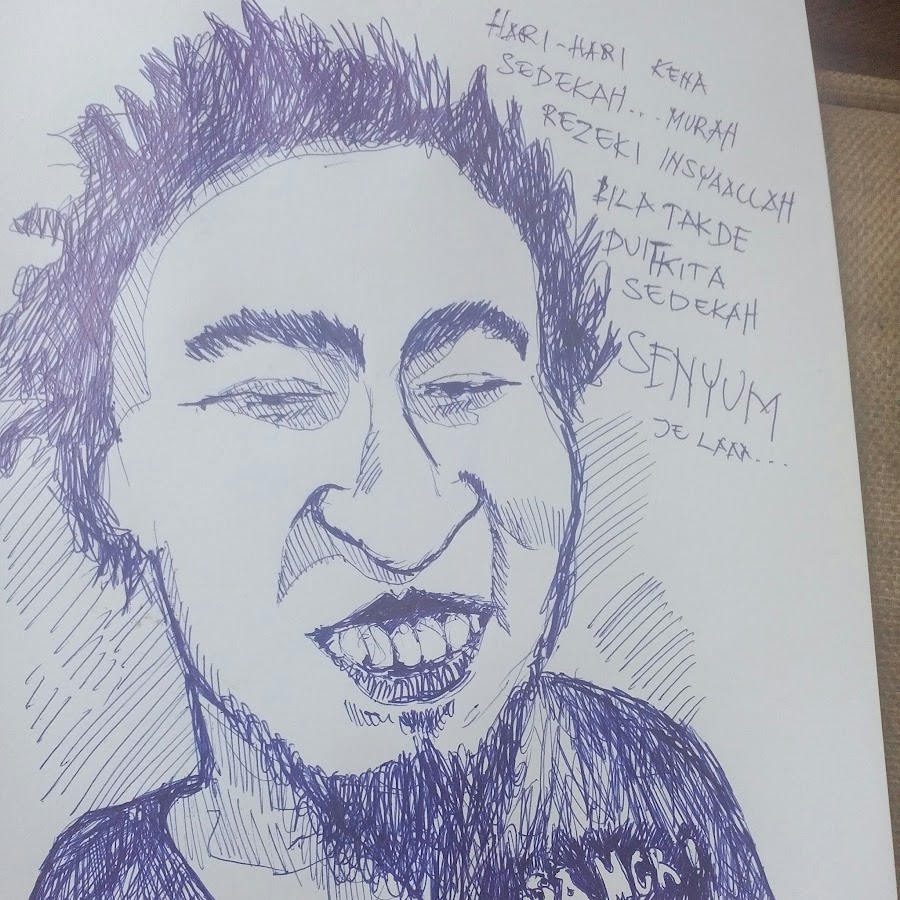 HARI-HARI KENA
SEDEKAH... MURAH
REZEKI INSYAALLAH
BILA TAKDE
DUIT KITA
SEDEKAH
SENYUM
JE LAAA...